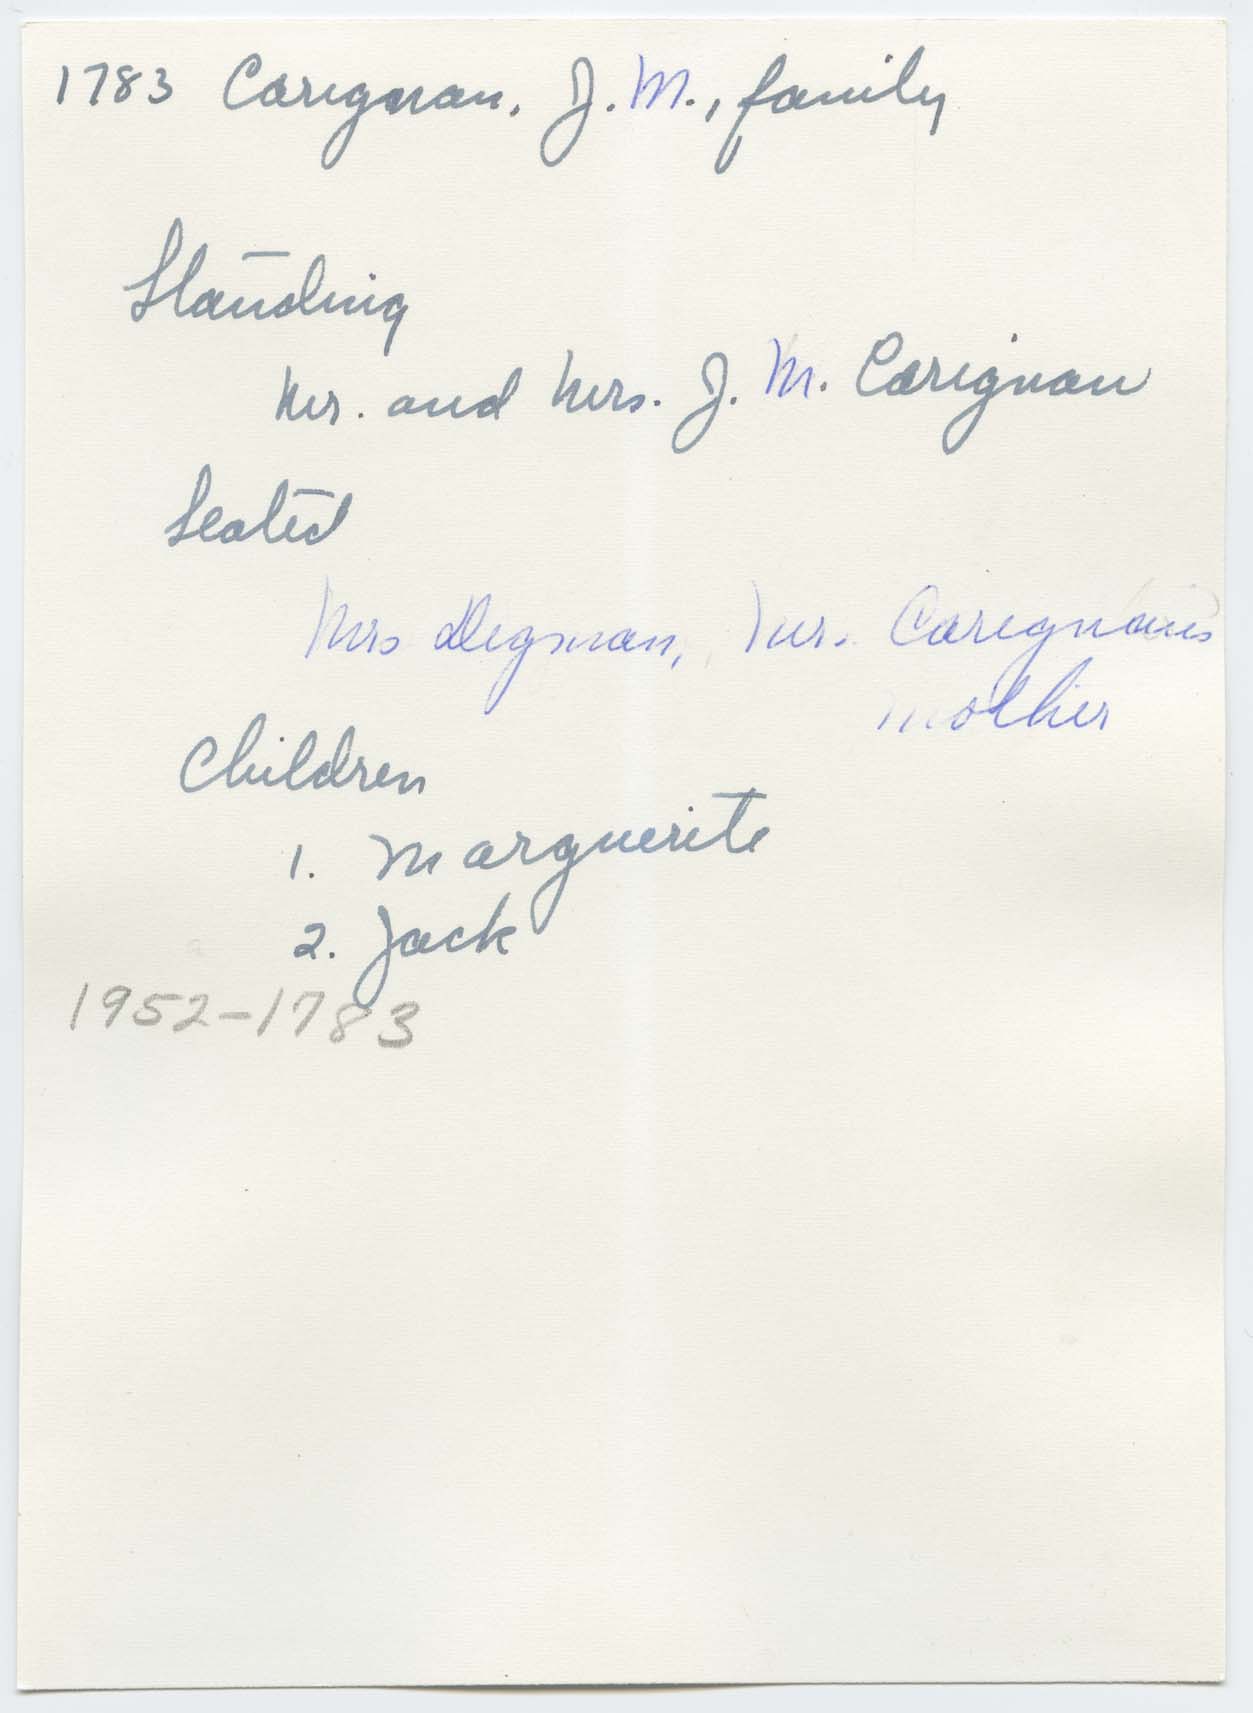 1783 Carignan, J. M., family
Standing
Mr. and Mrs. J. M. Carignan
Seated
Mrs Degnan, Mrs. Carignans
Mother
Children
1. Marguerite
2. Jack
1952-1783